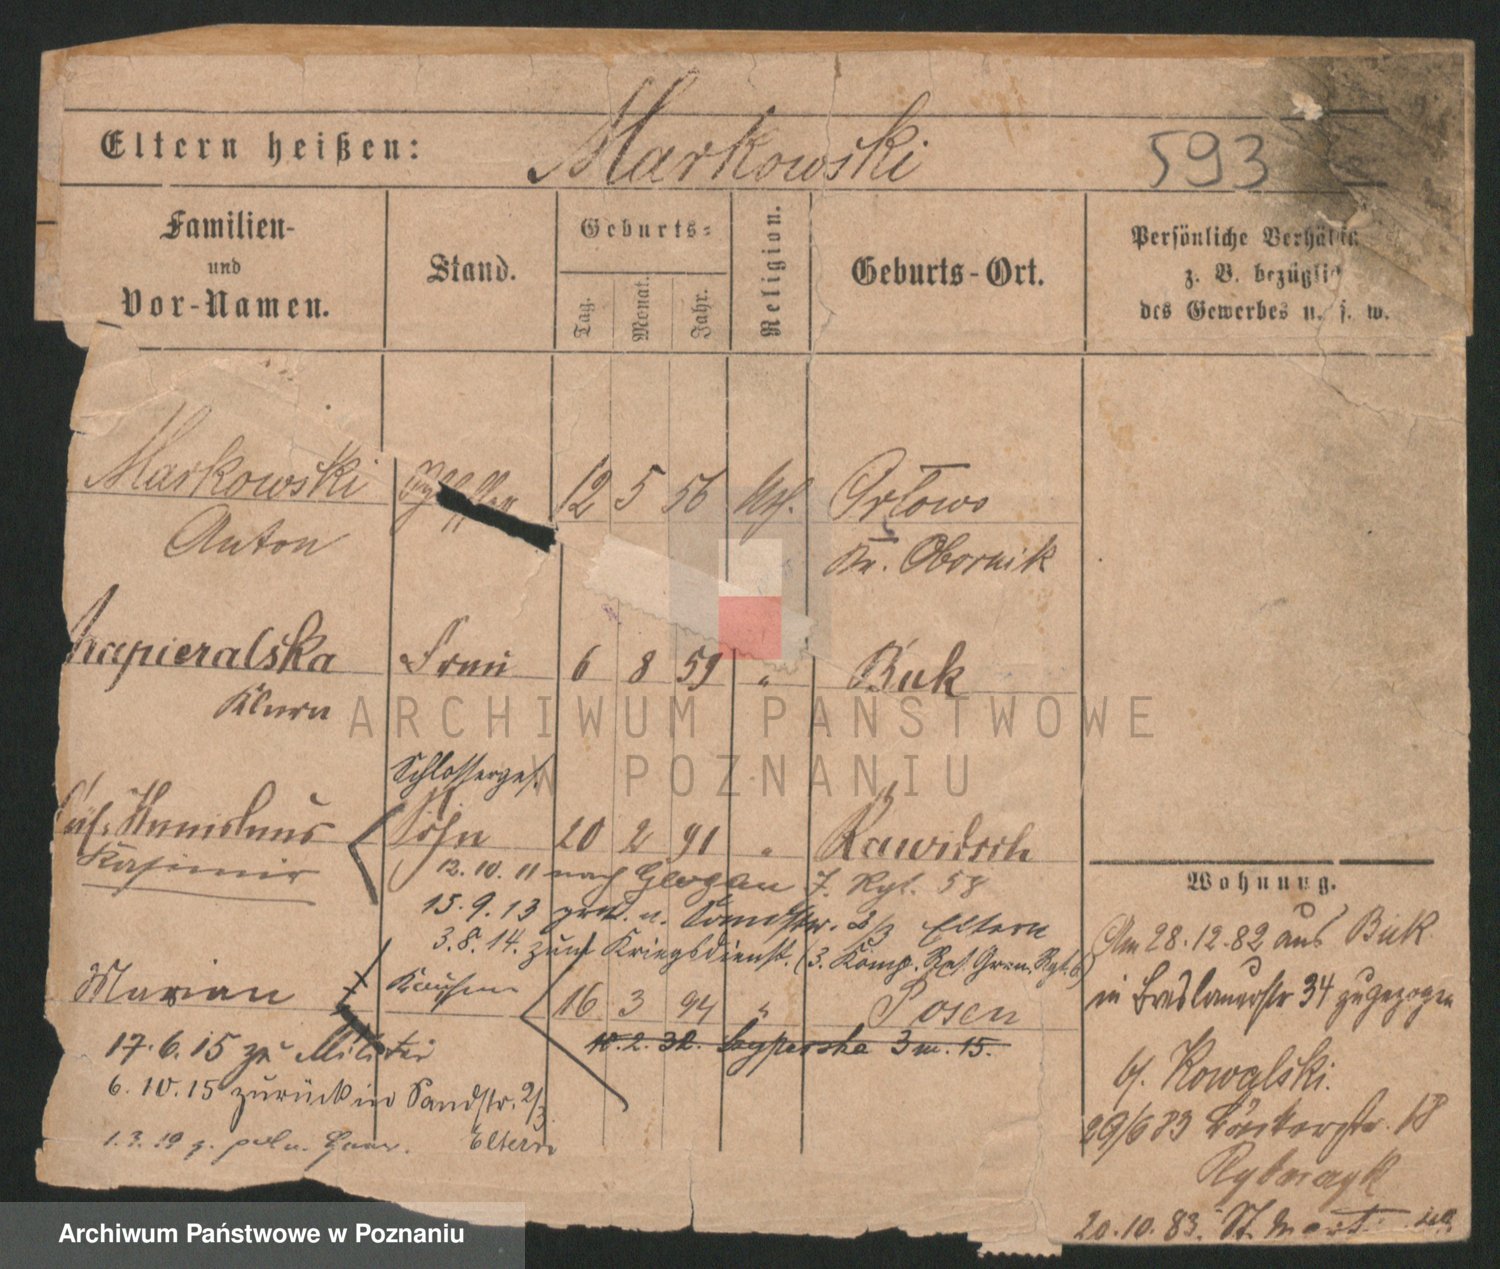 Eltern heißen: Markowski 593
Familien- und Vor-Namen.
Stand.
Geburts-
Tag.
Monat.
Jahr.
Religion.
Geburts-Ort.
Persönliche Verhält
z. B. bezüglic
des Gewerbes u. s. w.
Markowski 12 5 56 Orlowo
Anton Kr. Obornik
Napieralska Frau 6 8 59 " Buk
Klara
Schlosserges.
Stanislaus Sohn 20 2 91 " Rawitsch
Kasimir
12.10.11 nach Glogau J. Rgt. 58
15.9.13 Sandstr. 2/3 Eltern
3.8.14. zum Kriegsdienst. (3. Komp. Res. Gren. Rgt. 6)
Marian Kaufm 16 3 94 " Posen
17.6.15 zu Militär
10.2.32. 3 m. 15.
6.10.15 zurück in Sandstr. 2/3
Eltern
1.3.19 z. poln.
Wohnung.
Am 28.12.82 aus Buk
in Breslauerstr 34 zugezogen
b/. Kowalski.
29/6 83 18
Rybarczyk
20.10.83. St. Mart
ARCHIWUM PAŃSTWOWE
W POZNANIU
Archiwum Państwowe w Poznaniu